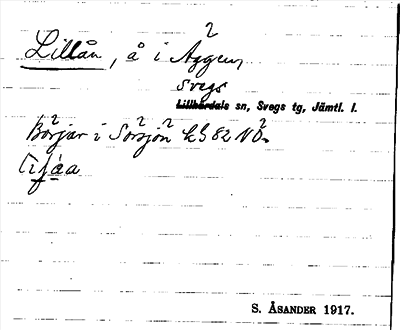 Lillån, å i Aggen,
Svegs
Lillhärdals sn, Svegs tg, Jämtl. l.
Börjar i Sörsjön kG 82 NO.
S. ÅSANDER 1917.